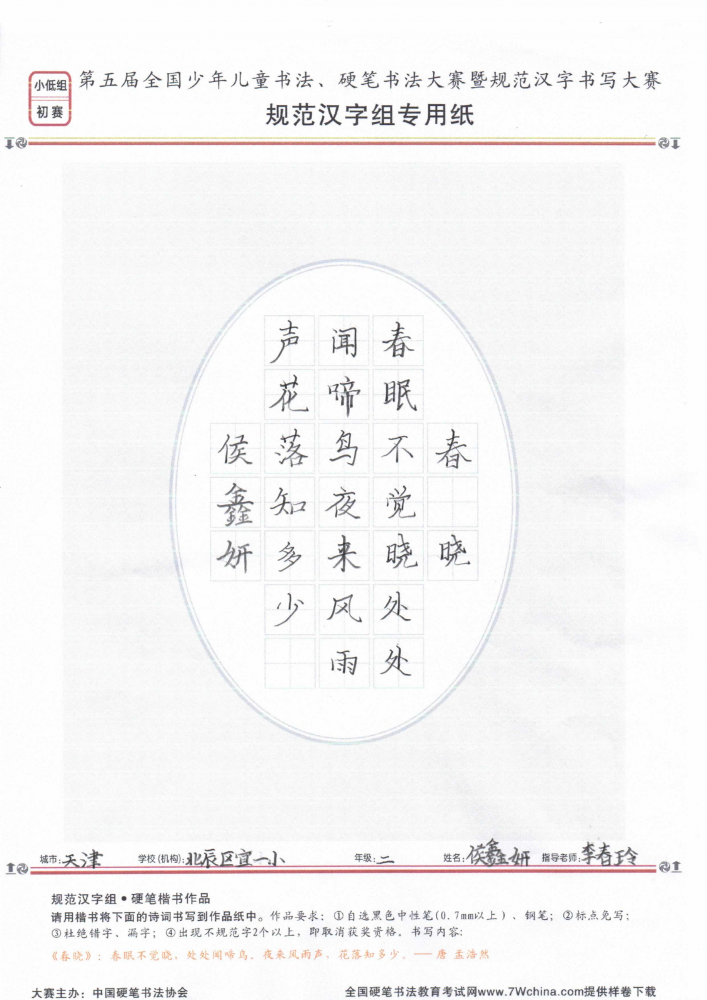 小低组
初赛
第五届全国少年儿童书法、硬笔书法大赛暨规范汉字书写大赛
规范汉字组专用纸
春晓
春眠不觉晓处处
闻啼鸟夜来风雨
声花落知多少
侯鑫妍
城市:天津 学校(机构):北辰区宜一小 年级:二 姓名:侯鑫妍 指导老师:李春玲
规范汉字组•硬笔楷书作品
请用楷书将下面的诗词书写到作品纸中。作品要求：①自选黑色中性笔(0.7mm以上)、钢笔；②标点免写；
③杜绝错字、漏字；④出现不规范字2个以上，即取消获奖资格。书写内容：
《春晓》：春眠不觉晓，处处闻啼鸟。夜来风雨声，花落知多少。——唐 孟浩然
大赛主办：中国硬笔书法协会 全国硬笔书法教育考试网www.7Wchina.com提供样卷下载